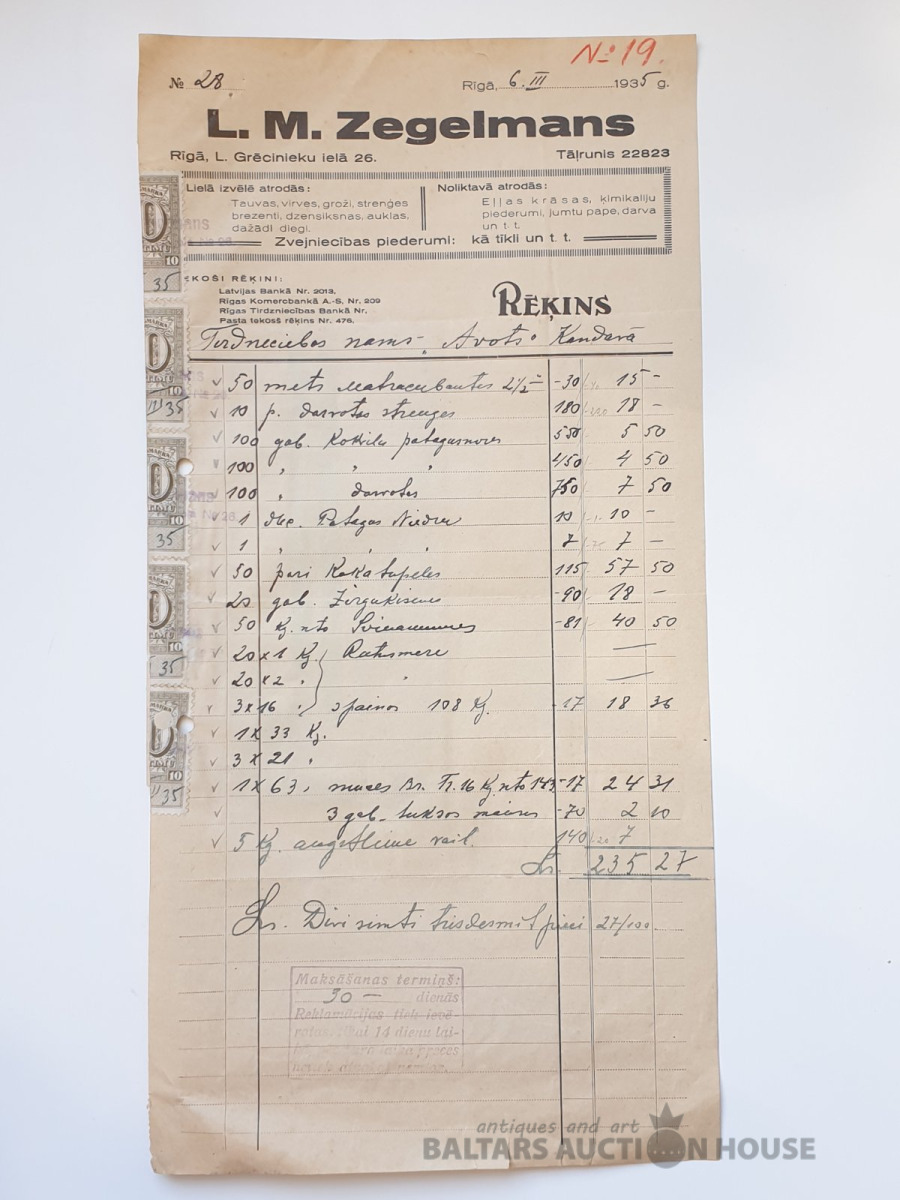 № 19.
№ 28 Rīgā, 6. III 1935 g.
L. M. Zegelmans
Rīgā, L. Grēcinieku ielā 26. Tāļrunis 22823
Lielā izvēlē atrodās:
Tauvas, virves, groži, strenģes
brezenti, dzensiksnas, auklas,
dažādi diegi.
Noliktavā atrodās:
Eļļas krāsas, ķimikaliju
piederumi, jumtu pape, darva
un t. t.
Zvejniecības piederumi: kā tīkli un t. t.
KOŠI RĒĶINI:
Latvijas Bankā Nr. 2013.
Rīgas Komercbankā A.-S. Nr. 209
Rīgas Tirdzniecības Bankā Nr.
Pasta tekošs rēķins Nr. 476.
RĒĶINS
Tirdzneciebas nams "Avots" Kandavā
50 mets 2½ -30 15 -
10 p. darvotas strenges 180 18 -
100 gab. Kokvila patagasnores 550 5 50
100 " " " 450 4 50
100 " darvotas 750 7 50
1 duc. Patagas 10 10 -
1 " " " 7 7 -
50 pari Koka tupeles 115 57 50
20 gab. -90 18 -
50 Kg. nto -81 40 50
20 x 1 Kg. Ratusmere —
20 x 2 " " —
3 x 16 " spainos 108 Kg. -17 18 36
1 x 33 Kg.
3 x 21 "
1 x 63 " muces Br. Tr. 16 Kg nto 143 -17 24 31
3 gab. -70 2 10
5 Kg. 140 7
Ls. 235 27
Ls. Divi simti trisdesmit pieci 27/100
Maksāšanas termiņš:
30 — dienās
Reklamācijas tiek ievē-
rotas tikai 14 dienu lai-
35
10
35
35
35
35
10
antiques and art
BALTARS AUCTION HOUSE